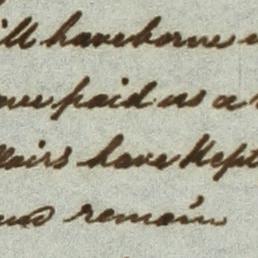 ill have borne
paid us a
fairs have kept
remain